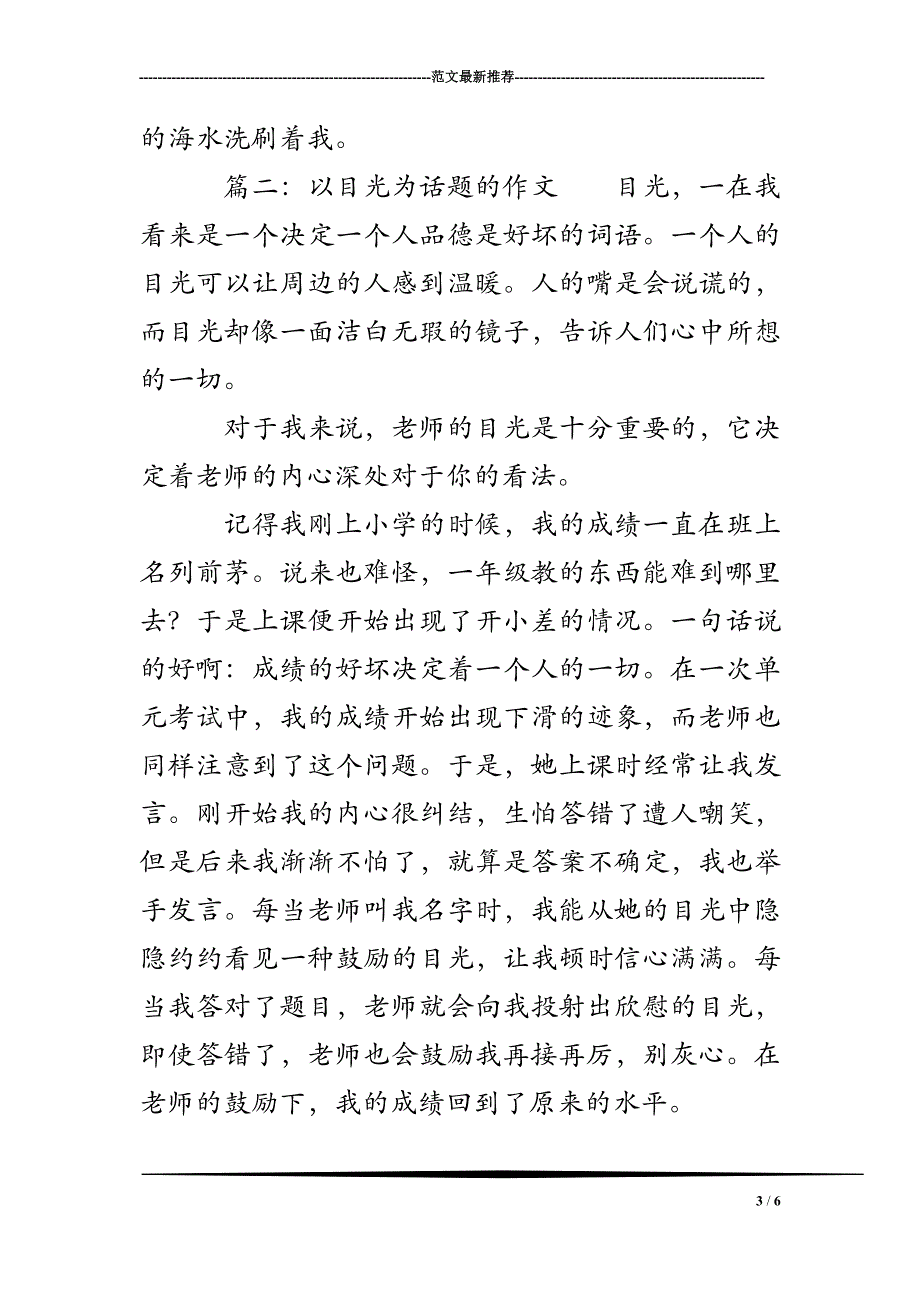 ---------------------------------------------------------------范文最新推荐------------------------------------------------------
的海水洗刷着我。
篇二：以目光为话题的作文　　目光，一在我
看来是一个决定一个人品德是好坏的词语。一个人的
目光可以让周边的人感到温暖。人的嘴是会说谎的，
而目光却像一面洁白无瑕的镜子，告诉人们心中所想
的一切。
对于我来说，老师的目光是十分重要的，它决
定着老师的内心深处对于你的看法。
记得我刚上小学的时候，我的成绩一直在班上
名列前茅。说来也难怪，一年级教的东西能难到哪里
去？于是上课便开始出现了开小差的情况。一句话说
的好啊：成绩的好坏决定着一个人的一切。在一次单
元考试中，我的成绩开始出现下滑的迹象，而老师也
同样注意到了这个问题。于是，她上课时经常让我发
言。刚开始我的内心很纠结，生怕答错了遭人嘲笑，
但是后来我渐渐不怕了，就算是答案不确定，我也举
手发言。每当老师叫我名字时，我能从她的目光中隐
隐约约看见一种鼓励的目光，让我顿时信心满满。每
当我答对了题目，老师就会向我投射出欣慰的目光，
即使答错了，老师也会鼓励我再接再厉，别灰心。在
老师的鼓励下，我的成绩回到了原来的水平。
3 / 6